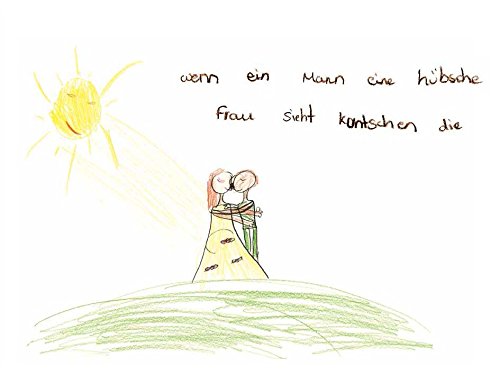 wenn ein Mann eine hübsche
Frau sieht kontschen die